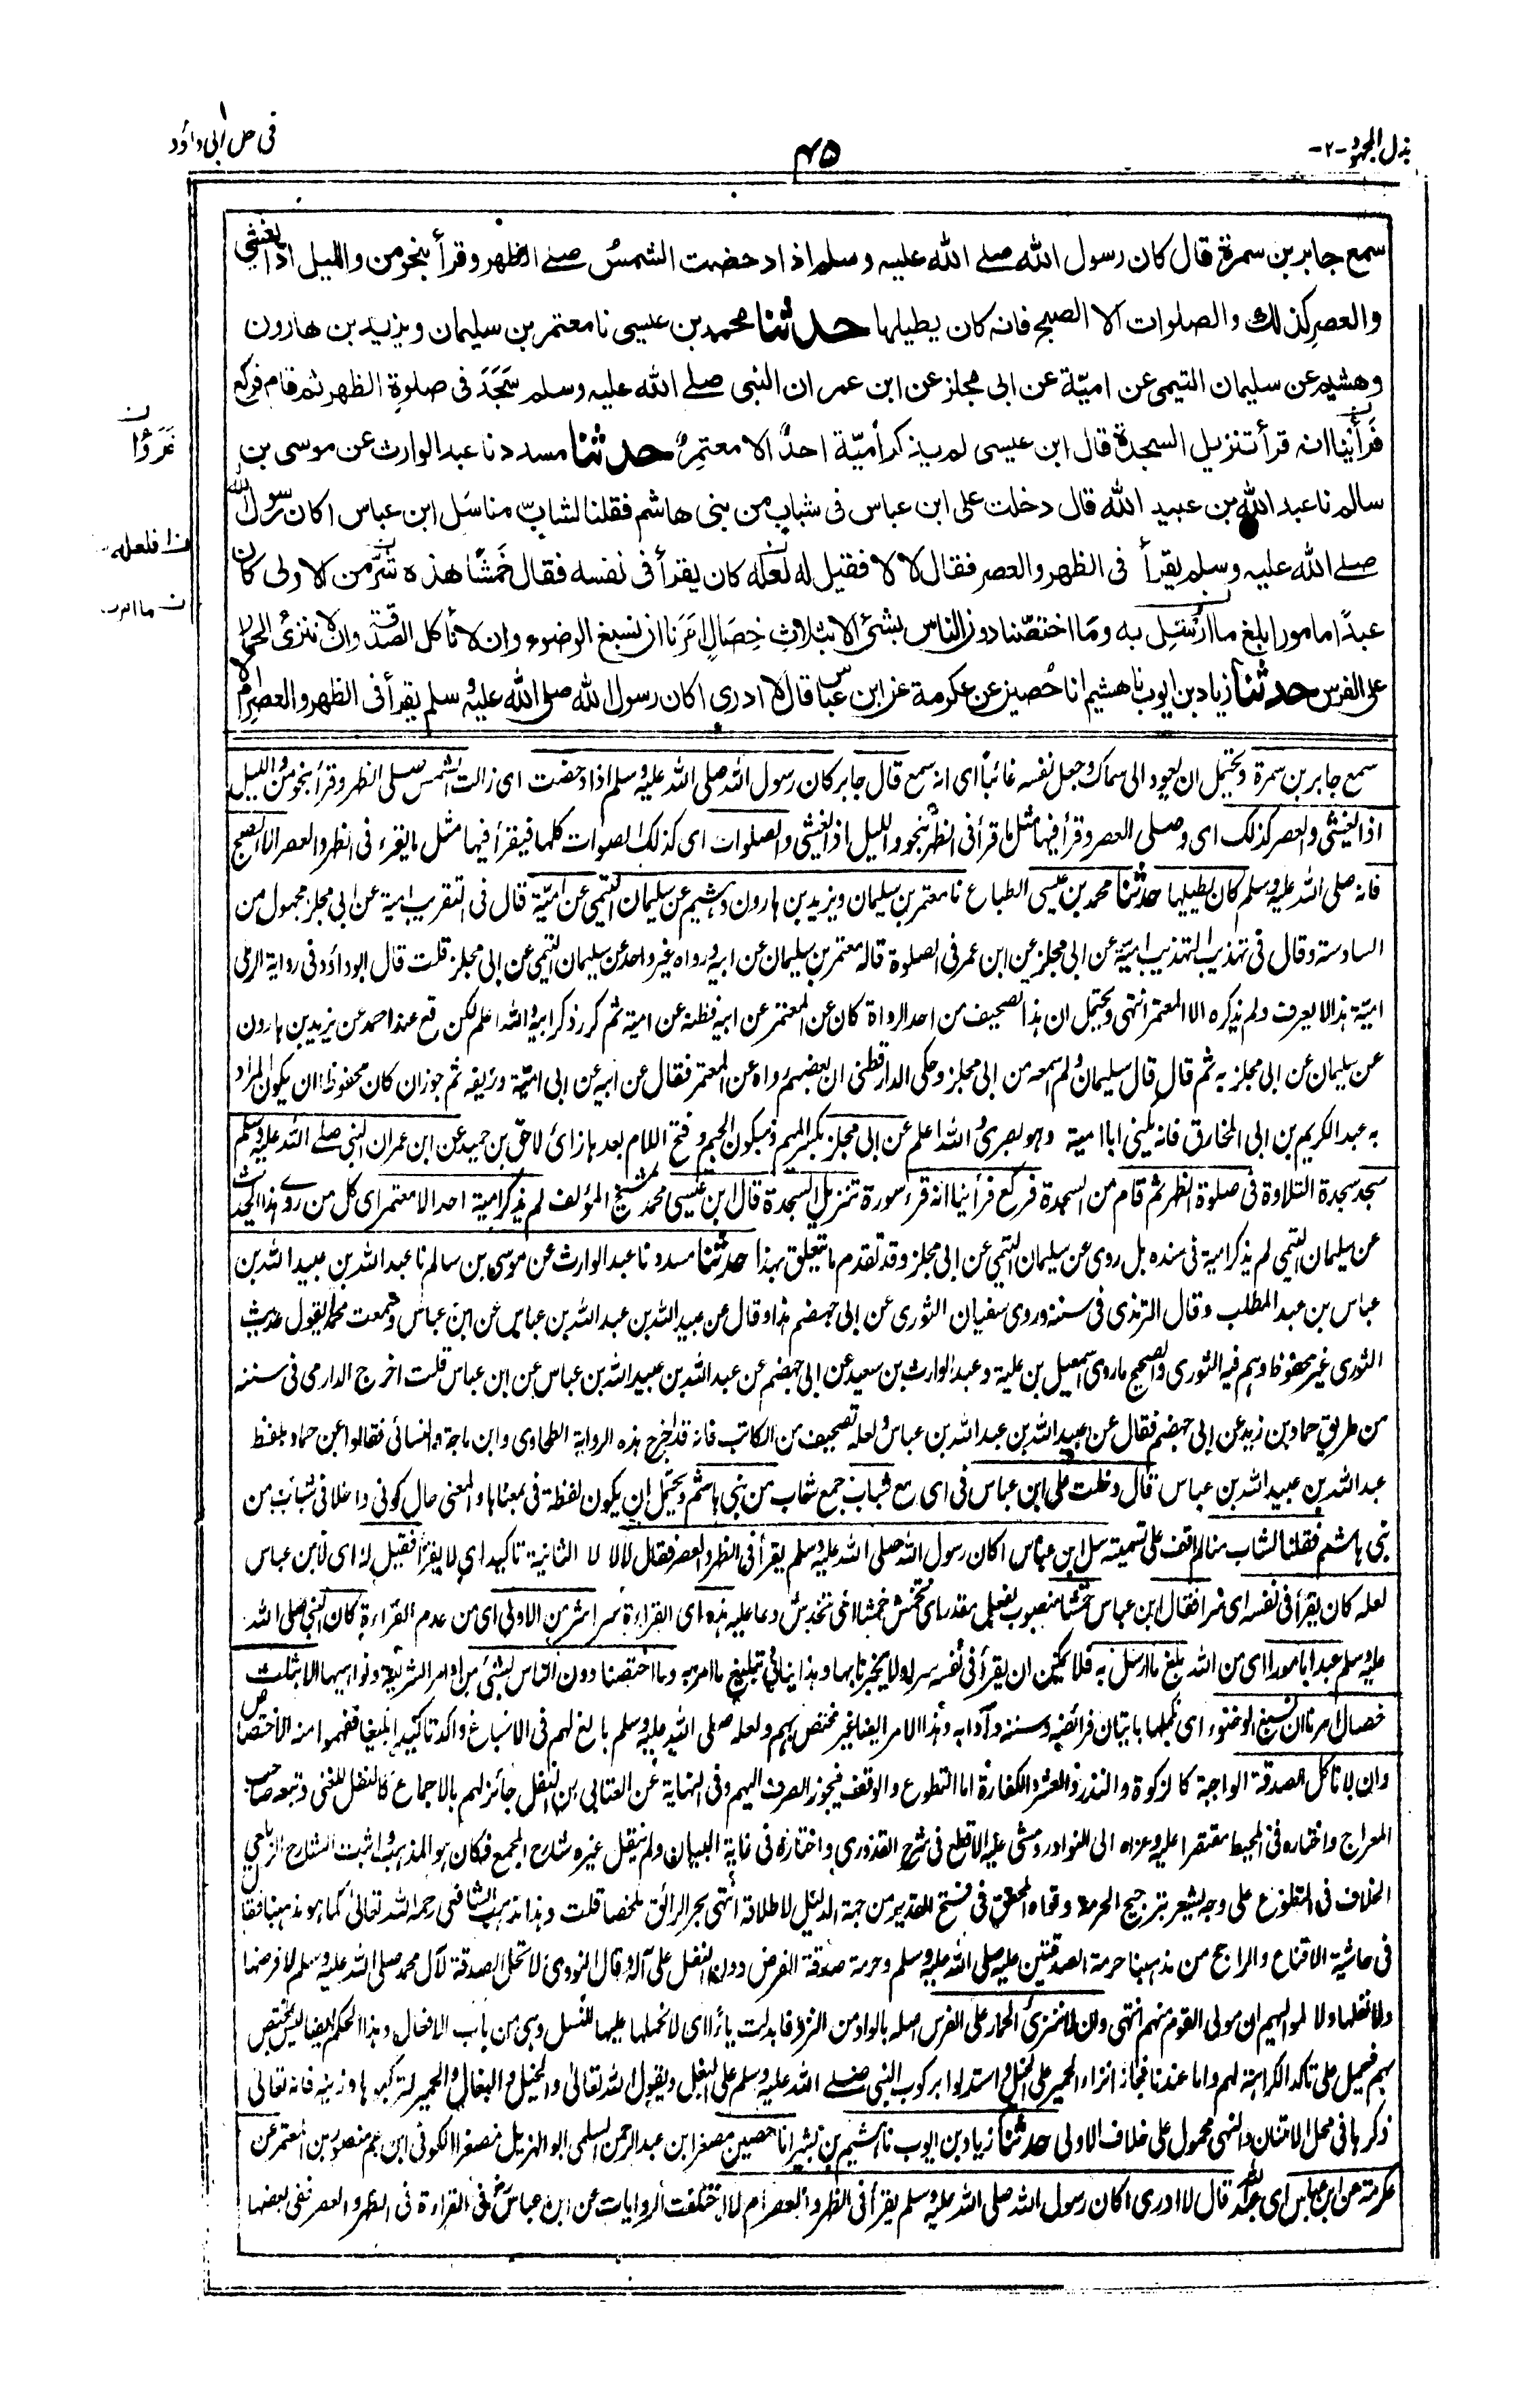 بذل المجهود -٢-
٤٥
فى حل ابى داؤد
سمع جابر بن سمرة قال كان رسول الله صلے الله عليه وسلم اذا دحضت الشمسُ صلے الظهر وقرأ بنحو من والليل اذا يغشي
والعصرِ كذلك والصلوات الا الصبح فانه كان يطيلها حدثنا محمد بن عيسى نا معتمر بن سليمان ويزيد بن هارون
وهشيم عن سليمان التيمى عن اميّة عن ابى مجلز عن ابن عمر ان النبى صلے الله عليه وسلم سَجَدَ فى صلوةِ الظهر ثم قام فركع
فرأينا انه قرأ تنزيل السجدة قال ابن عيسى لم يذكر أميّة احدٌ الا معتمِرٌ حدثنا مسدد نا عبد الوارث عن موسى بن
سالم نا عبد الله بن عبيد الله قال دخلت على ابن عباس فى شباب من بنى هاشم فقلنا لشابّ منا سَل ابن عباس اكان رسول الله
صلے الله عليه وسلم يقرأ فى الظهر والعصر فقال لا لا فقيل له لعله كان يقرأ فى نفسه فقال خَمشًا هذه شرٌّ من الاولى كان
عبدًا مامورا بلغ ما اُرسِل به وما اختصّنا دون الناس بشئ الا بثلاثِ خِصَالٍ امَرَنا ان نسبغ الوضوء وان لا نأكل الصدقة وان لا ننزئ الحمار
على الفرس حدثنا زياد بن ايوب نا هشيم انا حُصين عن عكرمة عن ابن عباس قال لا ادرى اكان رسول الله صلى الله عليه وسلم يقرأ فى الظهر والعصر ام لا
سمع جابر بن سمرة ويحتمل ان يعود الى سماك وجعل نفسه غائبًا اى انه سمع قال جابر كان رسول الله صلى الله عليه وسلم اذا دحضت اى زالت الشمس صلى الظهر وقرأ بنحو من والليل
اذا يغشي والعصر كذلك اى وصلى العصر وقرأ فيها مثل ما قرأ فى الظهر بنحو والليل اذا يغشي والصلوات اى كذلك الصلوات كلها فيقرأ فيها مثل ما يقرء فى الظهر والعصر الا الصبح
فانه صلى الله عليه وسلم كان يطيلها حدثنا محمد بن عيسى الطباع نا معتمر بن سليمان ويزيد بن هارون وهشيم عن سليمان التيمى عن اميّة قال فى التقريب امية عن ابى مجلز مجهول من
السادسة وقال فى تهذيب التهذيب امية عن ابى مجلز عن ابن عمر فى الصلوة قاله معتمر بن سليمان عن ابيه ورواه غير واحد عن سليمان التيمى عن ابى مجلز قلت قال ابوداؤد فى رواية الرملى
اميّة هذا لا يعرف ولم يذكره الا المعتمر انتهى ويحتمل ان هذا تصحيف من احد الرواة كان عن المعتمر عن ابيه فظنه عن امية ثم كرر ذكر ابيه والله اعلم لكن وقع عند احمد عن يزيد بن هارون
عن سليمان عن ابى مجلز به ثم قال قال سليمان ولم اسمعه من ابى مجلز وحكى الدارقطنى ان بعضهم رواه عن المعتمر فقال عن ابيه عن ابى اميّة وزيفه ثم جوز ان كان محفوظا ان يكون المراد
به عبد الكريم بن ابى المخارق فانه يكنى ابا امية وهو بصرى والله اعلم عن ابى مجلز بكسر الميم وسكون الجيم وفتح اللام بعدها زائ لاحق بن حميد عن ابن عمر ان النبى صلے الله عليه وسلم
سجد سجدة التلاوة فى صلوة الظهر ثم قام من السجدة فركع فرأينا انه قرء سورة تنزيل السجدة قال ابن عيسى محمد شيخ المؤلف لم يذكر امية احد الا معتمر اى كل من روے هذا الحديث
عن سليمان التيمى لم يذكر امية فى سنده بل روى عن سليمان التيمى عن ابى مجلز وقد تقدم ما يتعلق بهذا حدثنا مسدد نا عبد الوارث عن موسى بن سالم نا عبد الله بن عبيد الله بن
عباس بن عبد المطلب وقال الترمذى فى سننه وروى سفيان الثورى عن ابى جهضم هذا وقال عن عبيد الله بن عبد الله بن عباس عن ابن عباس وسمعت محمدا يقول حديث
الثورى غير محفوظ وهم فيه الثورى والصحيح ما روى اسمعيل بن علية وعبد الوارث بن سعيد عن ابى جهضم عن عبد الله بن عبيد الله بن عباس عن ابن عباس قلت اخرج الدارمى فى سننه
من طريق حماد بن زيد عن ابى جهضم فقال عن عبيد الله بن عبد الله بن عباس ولعله تصحيف من الكاتب فانه قد اخرج هذه الرواية الطحاوى وابن ماجة والنسائى فقالوا عن حماد بلفظ
عبد الله بن عبيد الله بن عباس قال دخلت على ابن عباس فى اى مع شباب جمع شاب من بنى هاشم ويحتمل ان يكون لفظة فى بمعناها والمعنى حال كونى داخلا فى شباب من
بنى هاشم فقلنا لشاب منا لم اقف على تسميته سل ابن عباس اكان رسول الله صلى الله عليه وسلم يقرأ فى الظهر والعصر فقال لا لا لا الثانية تاكيد اى لا يقرأ فقيل له اى لابن عباس
لعله كان يقرأ فى نفسه اى سرا فقال ابن عباس خمشا منصوب بفعل مقدر اى تخمش خمشا اى تخدش دعا عليه هذه اى القراءة سرا شر من الاولى اى من عدم القراءة كان النبى صلى الله
عليه وسلم عبدا مامورا اى من الله بلغ ما ارسل به فلا يمكن ان يقرأ فى نفسه سرا ولا يخبرنا بها وهذا ينافى تبليغ ما امر به وما اختصنا دون الناس بشئ من اوامر الشريعة ونواهيها الا بثلث
خصال امرنا ان نسبغ الوضوء اى نكملها باتيان فرائضه وسننه وآدابه وهذا الامر ايضا غير مختص بهم ولعله صلى الله عليه وسلم بالغ لهم فى الاسباغ واكد تاكيدا بليغا ففهموا منه الاختصاص
وان لا ناكل الصدقة الواجبة كالزكوة والنذر والعشر والكفارة اما التطوع والوقف فيجوز الصرف اليهم وفى النهاية عن العتابى ان النفل جائز لهم بالاجماع كالنفل للغنى وتبعه صاحب
المعراج واختاره فى المحيط مقتصرا عليه وعزاه الى النوادر ومشى عليه الاقطع فى شرح القدورى واختاره فى غاية البيان ولم ينقل غيره شارح المجمع فكان هو المذهب واثبت الشارح الزيلعى
الخلاف فى التطوع على وجه يشعر بترجيح الحرمة وقواه المحقق فى فتح القدير من جهة الدليل لاطلاقه انتهى بحر الرائق ملخصا قلت وهذا مذهب الشافعى رحمه الله تعالى كما هو مذهبنا فقال
فى حاشية الاقناع والراجح من مذهبنا حرمة الصدقتين عليه صلى الله عليه وسلم وحرمة صدقة الفرض دون النفل على آله وقال النووى لا تحل الصدقة لآل محمد صلى الله عليه وسلم لا فرضها
ولا نفلها ولا لمواليهم ان مولى القوم منهم انتهى وان لا ننزئ الحمار على الفرس اصله بالواو من النزو فابدلت ياءً اى لا نحملها عليها للنسل وهى من باب الافعال وهذا الحكم ايضا ليس يختص
بهم فيحمل على تاكد الكراهة لهم واما عندنا فجاز انزاء الحمير على الخيل واستدلوا بركوب النبى صلے الله عليه وسلم على البغل وبقول الله تعالى والخيل والبغال والحمير لتركبوها وزينة فانه تعالى
ذكرها فى محل الامتنان والنهى محمول على خلاف الاولى حدثنا زياد بن ايوب نا هشيم بن بشير انا حصين مصغرا ابن عبد الرحمن السلمى ابو الهزيل مصغرا الكوفى ابن عم منصور بن المعتمر عن
عكرمة عن ابن عباس اى عبد الله قال لا ادرى اكان رسول الله صلى الله عليه وسلم يقرأ فى الظهر والعصر ام لا اختلفت الروايات عن ابن عباس فى القراءة فى الظهر والعصر نفى بعضها
ن
فَرَوْا
ن فلعله